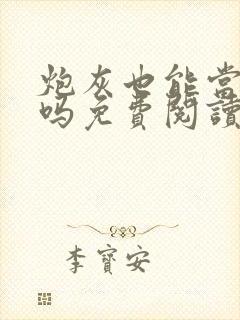 炮灰也能当
吗免費閱讀
李寶安